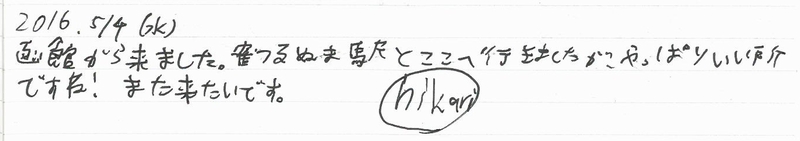 2016.5/4 (水)
函館から来ました。つるぬま駅とここへ行きましたが、やっぱりいい所
ですね! また来たいです。 hikari